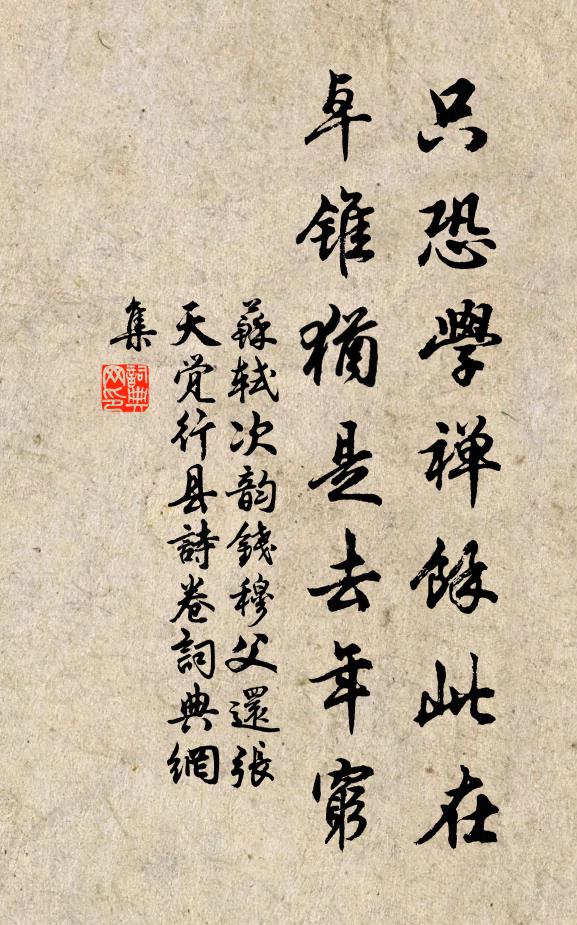 只恐學禅餘此在
卓錐猶是去年窮
蘇軾次韵錢穆父還張
天覚行县詩卷詞典網
集
詞典
网印